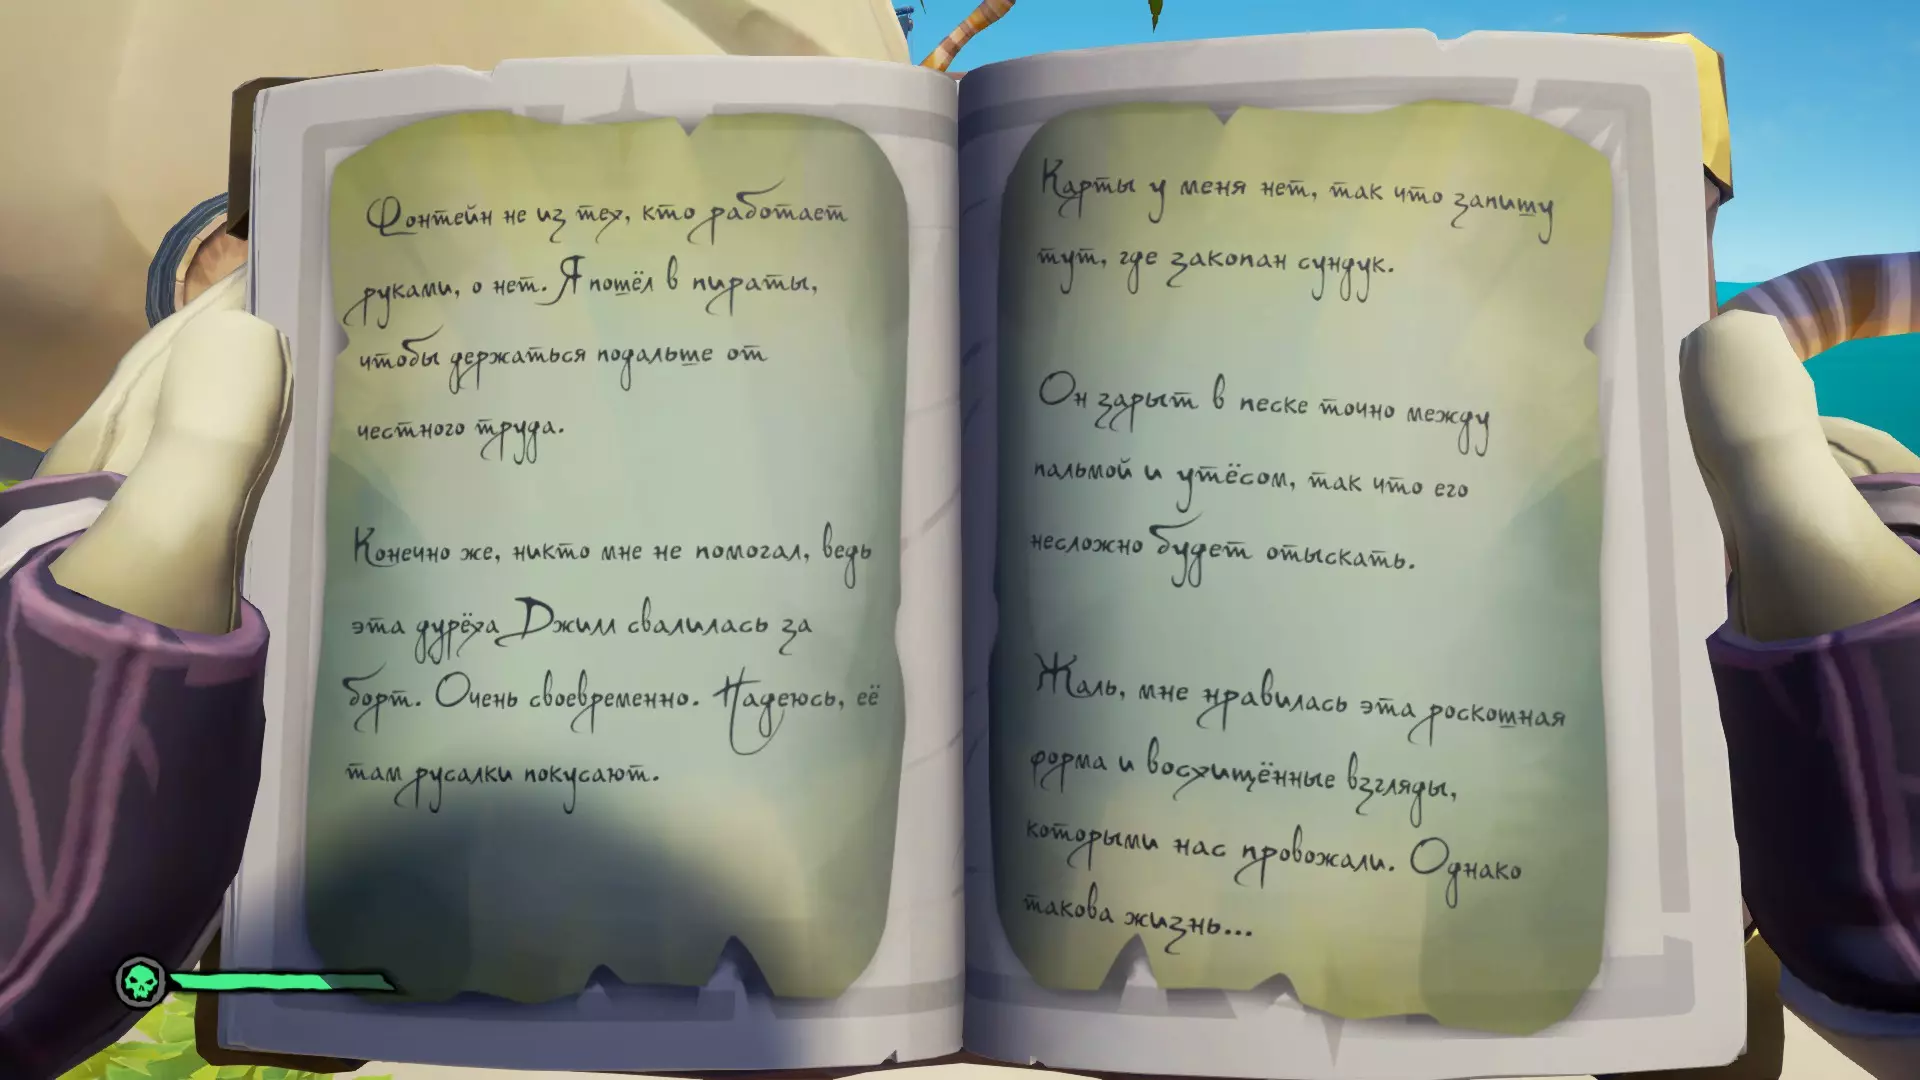 Фонтейн не из тех, кто работает
руками, о нет. Я пошёл в пираты,
чтобы держаться подальше от
честного труда.
Конечно же, никто мне не помогал, ведь
эта дурёха Джилл свалилась за
борт. Очень своевременно. Надеюсь, её
там русалки покусают.
Карты у меня нет, так что запишу
тут, где закопан сундук.
Он зарыт в песке точно между
пальмой и утёсом, так что его
несложно будет отыскать.
Жаль, мне нравилась эта роскошная
форма и восхищённые взгляды,
которыми нас провожали. Однако
такова жизнь...